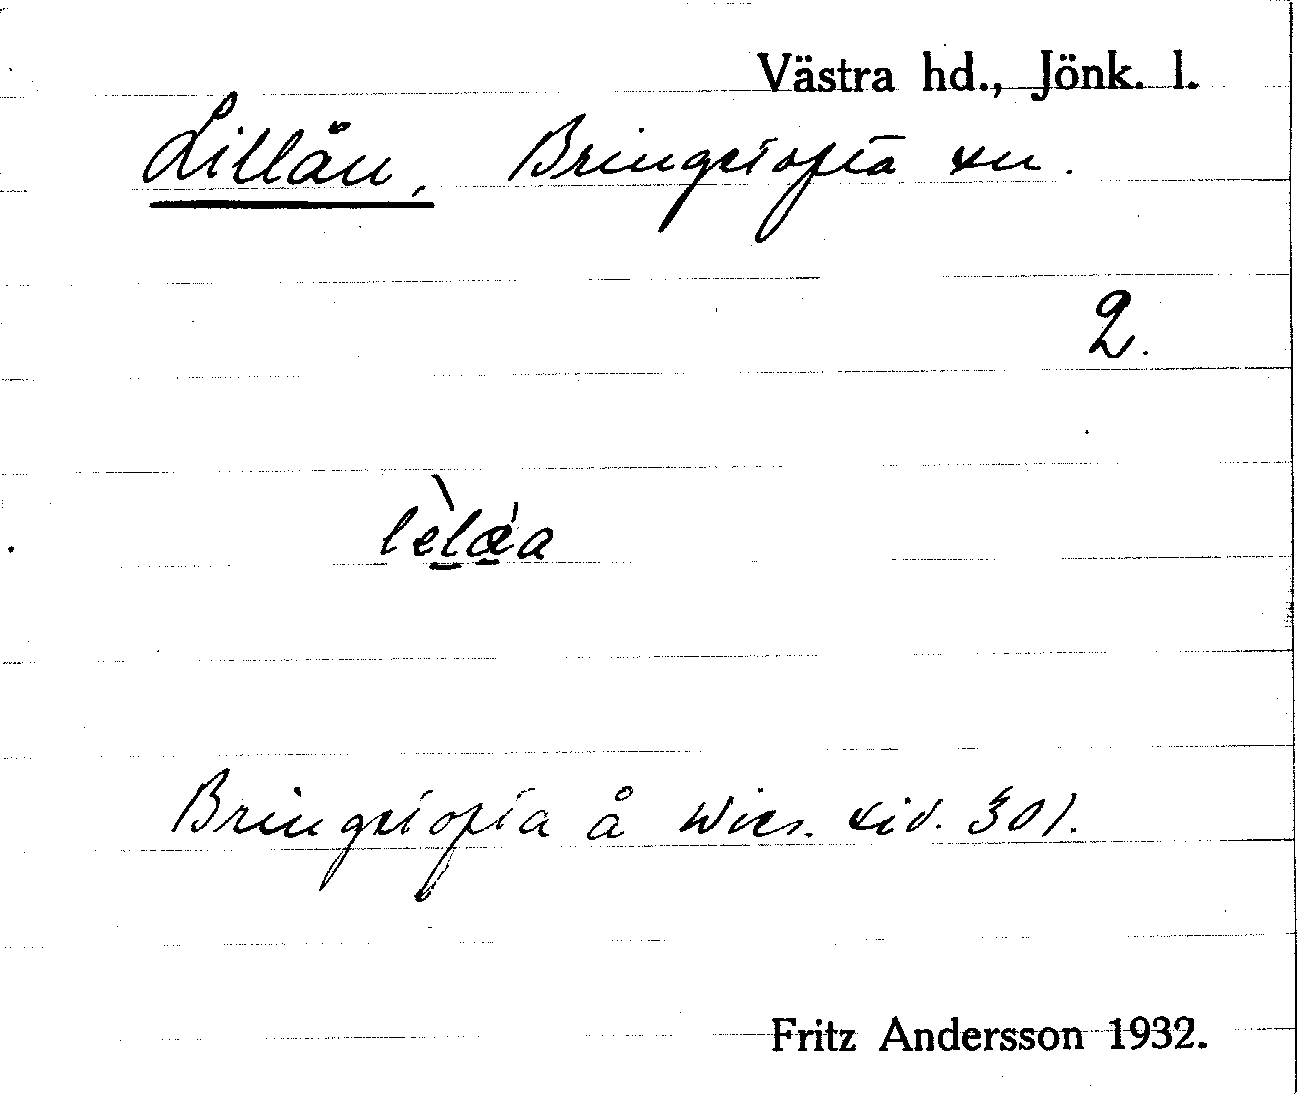 Västra hd., Jönk. l.
Lillån, Bringetofta sn.
2.
Bringetofta å Wies. sid. 301.
Fritz Andersson 1932.